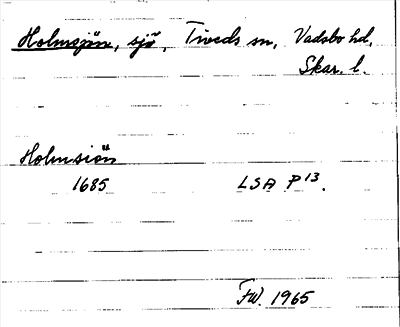 Holmsjön, sjö, Tiveds sn, Vadsbo hd,
Skar. l.
Holmsiön
1685 LSA P 13.
FW. 1965